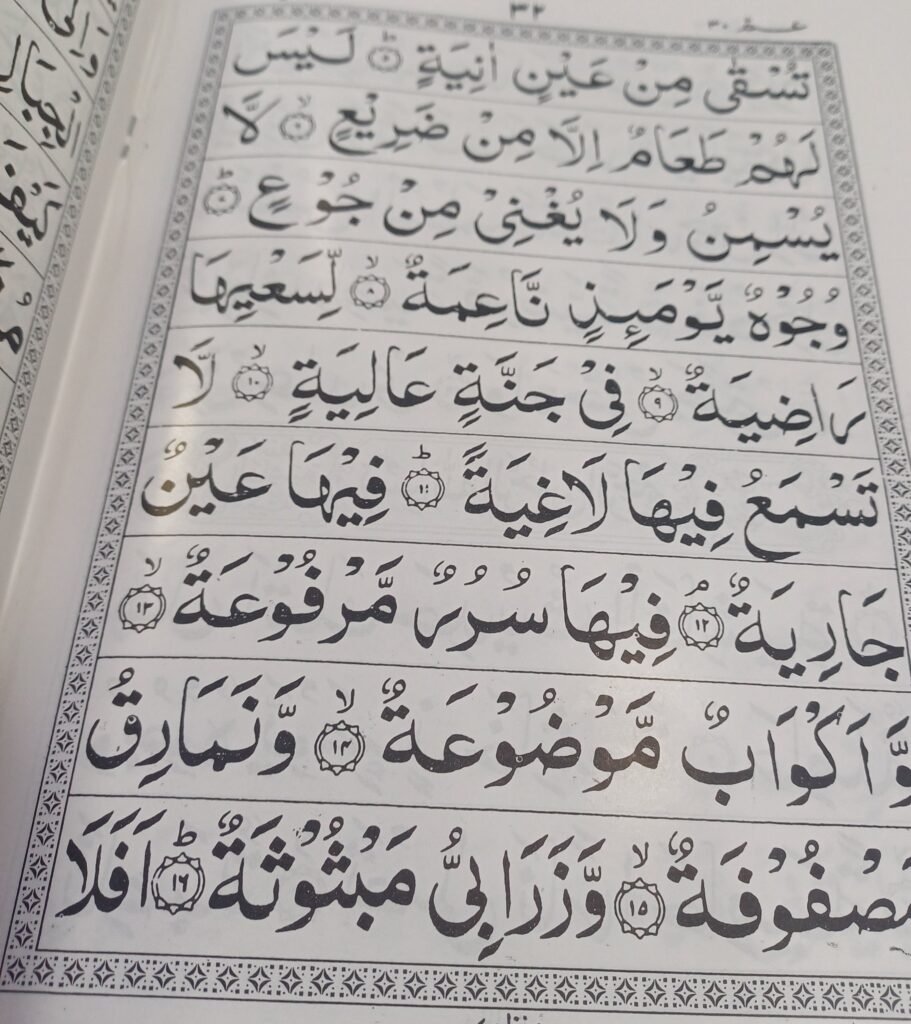 عـمّ ٣٠
٣٢
تُسْقٰى مِنْ عَيْنٍ اٰنِيَةٍ ۝ لَيْسَ
لَهُمْ طَعَامٌ اِلَّا مِنْ ضَرِيْعٍ ۝ لَّا
يُسْمِنُ وَلَا يُغْنِىْ مِنْ جُوْعٍ ۝
وُجُوْهٌ يَّوْمَئِذٍ نَّاعِمَةٌ ۝٨ لِّسَعْيِهَا
رَاضِيَةٌ ۝٩ فِىْ جَنَّةٍ عَالِيَةٍ ۝١٠ لَّا
تَسْمَعُ فِيْهَا لَاغِيَةً ۝ فِيْهَا عَيْنٌ
جَارِيَةٌ ۝١٢ فِيْهَا سُرُرٌ مَّرْفُوْعَةٌ ۝١٣
وَّاَكْوَابٌ مَّوْضُوْعَةٌ ۝١٤ وَّنَمَارِقُ
مَصْفُوْفَةٌ ۝١٥ وَّزَرَابِىُّ مَبْثُوْثَةٌ ۝١٦ اَفَلَا